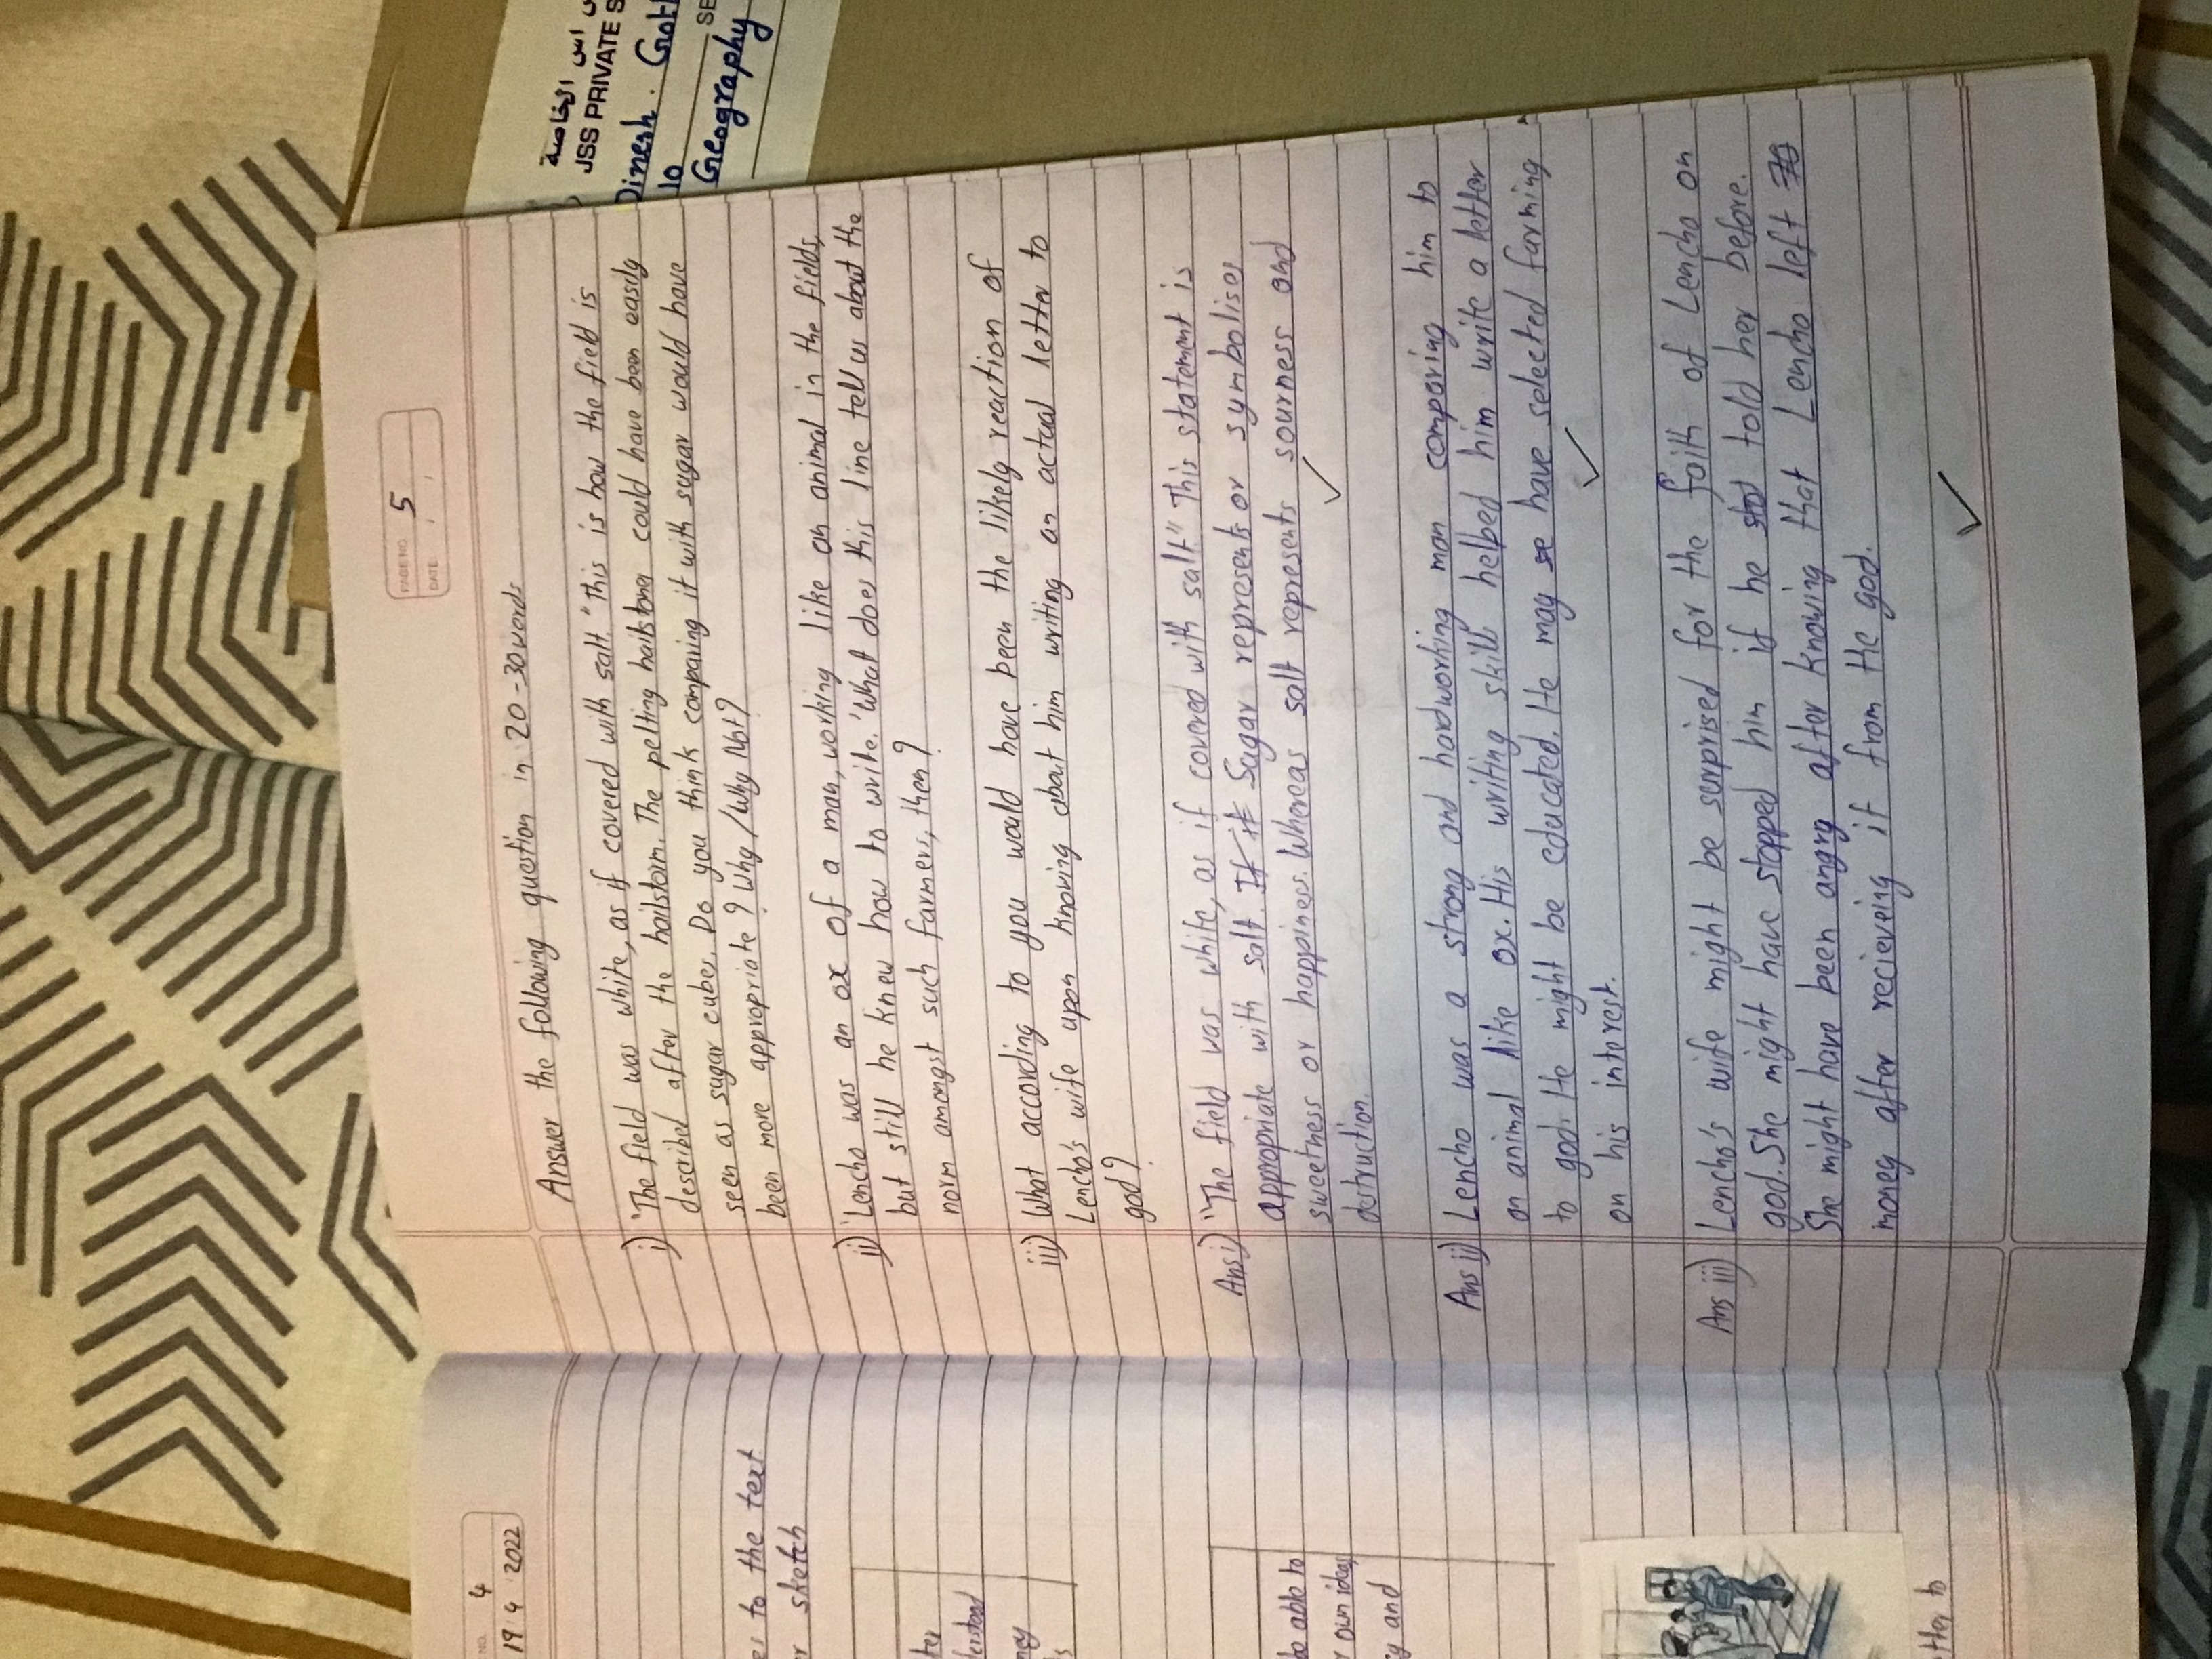 NO. 4
19 4 2022
es to the text
er sketch
ter
derstood
ney
s
be able to
r own ideas
g and
etter to
PAGE NO. 5
DATE: / /
Answer the following question in 20-30 words
i) "The field was white, as if covered with salt." This is how the field is
described after the hailstorm. The pelting hailstones could have been easily
seen as sugar cubes. Do you think comparing it with sugar would have
been more appropriate? Why /Why Not?
ii) 'Lencho was an ox of a man, working like an animal in the fields,
but still he knew how to write.' What does this line tell us about the
norm amongst such farmers, then?
iii) What according to you would have been the likely reaction of
Lencho's wife upon knowing about him writing an actual letter to
god?
Ans i) "The field was white, as if covered with salt" This statement is
appropriate with salt. If it Sugar represents or symbolises
sweetness or happiness. Whereas salt represents sourness and
destruction.
Ans ii) Lencho was a strong and hardworking man comparing him to
an animal like ox. His writing skills helped him write a letter
to god. He might be educated. He may se have selected farming
on his interest.
Ans iii) Lencho's wife might be surprised for the faith of Lencho on
god. She might have stopped him if he told her before.
She might have been angry after knowing that Lencho left
money after recieveing it from the god.
اس الخاصة
JSS PRIVATE S
Dinesh. Got
10
SE
Geography